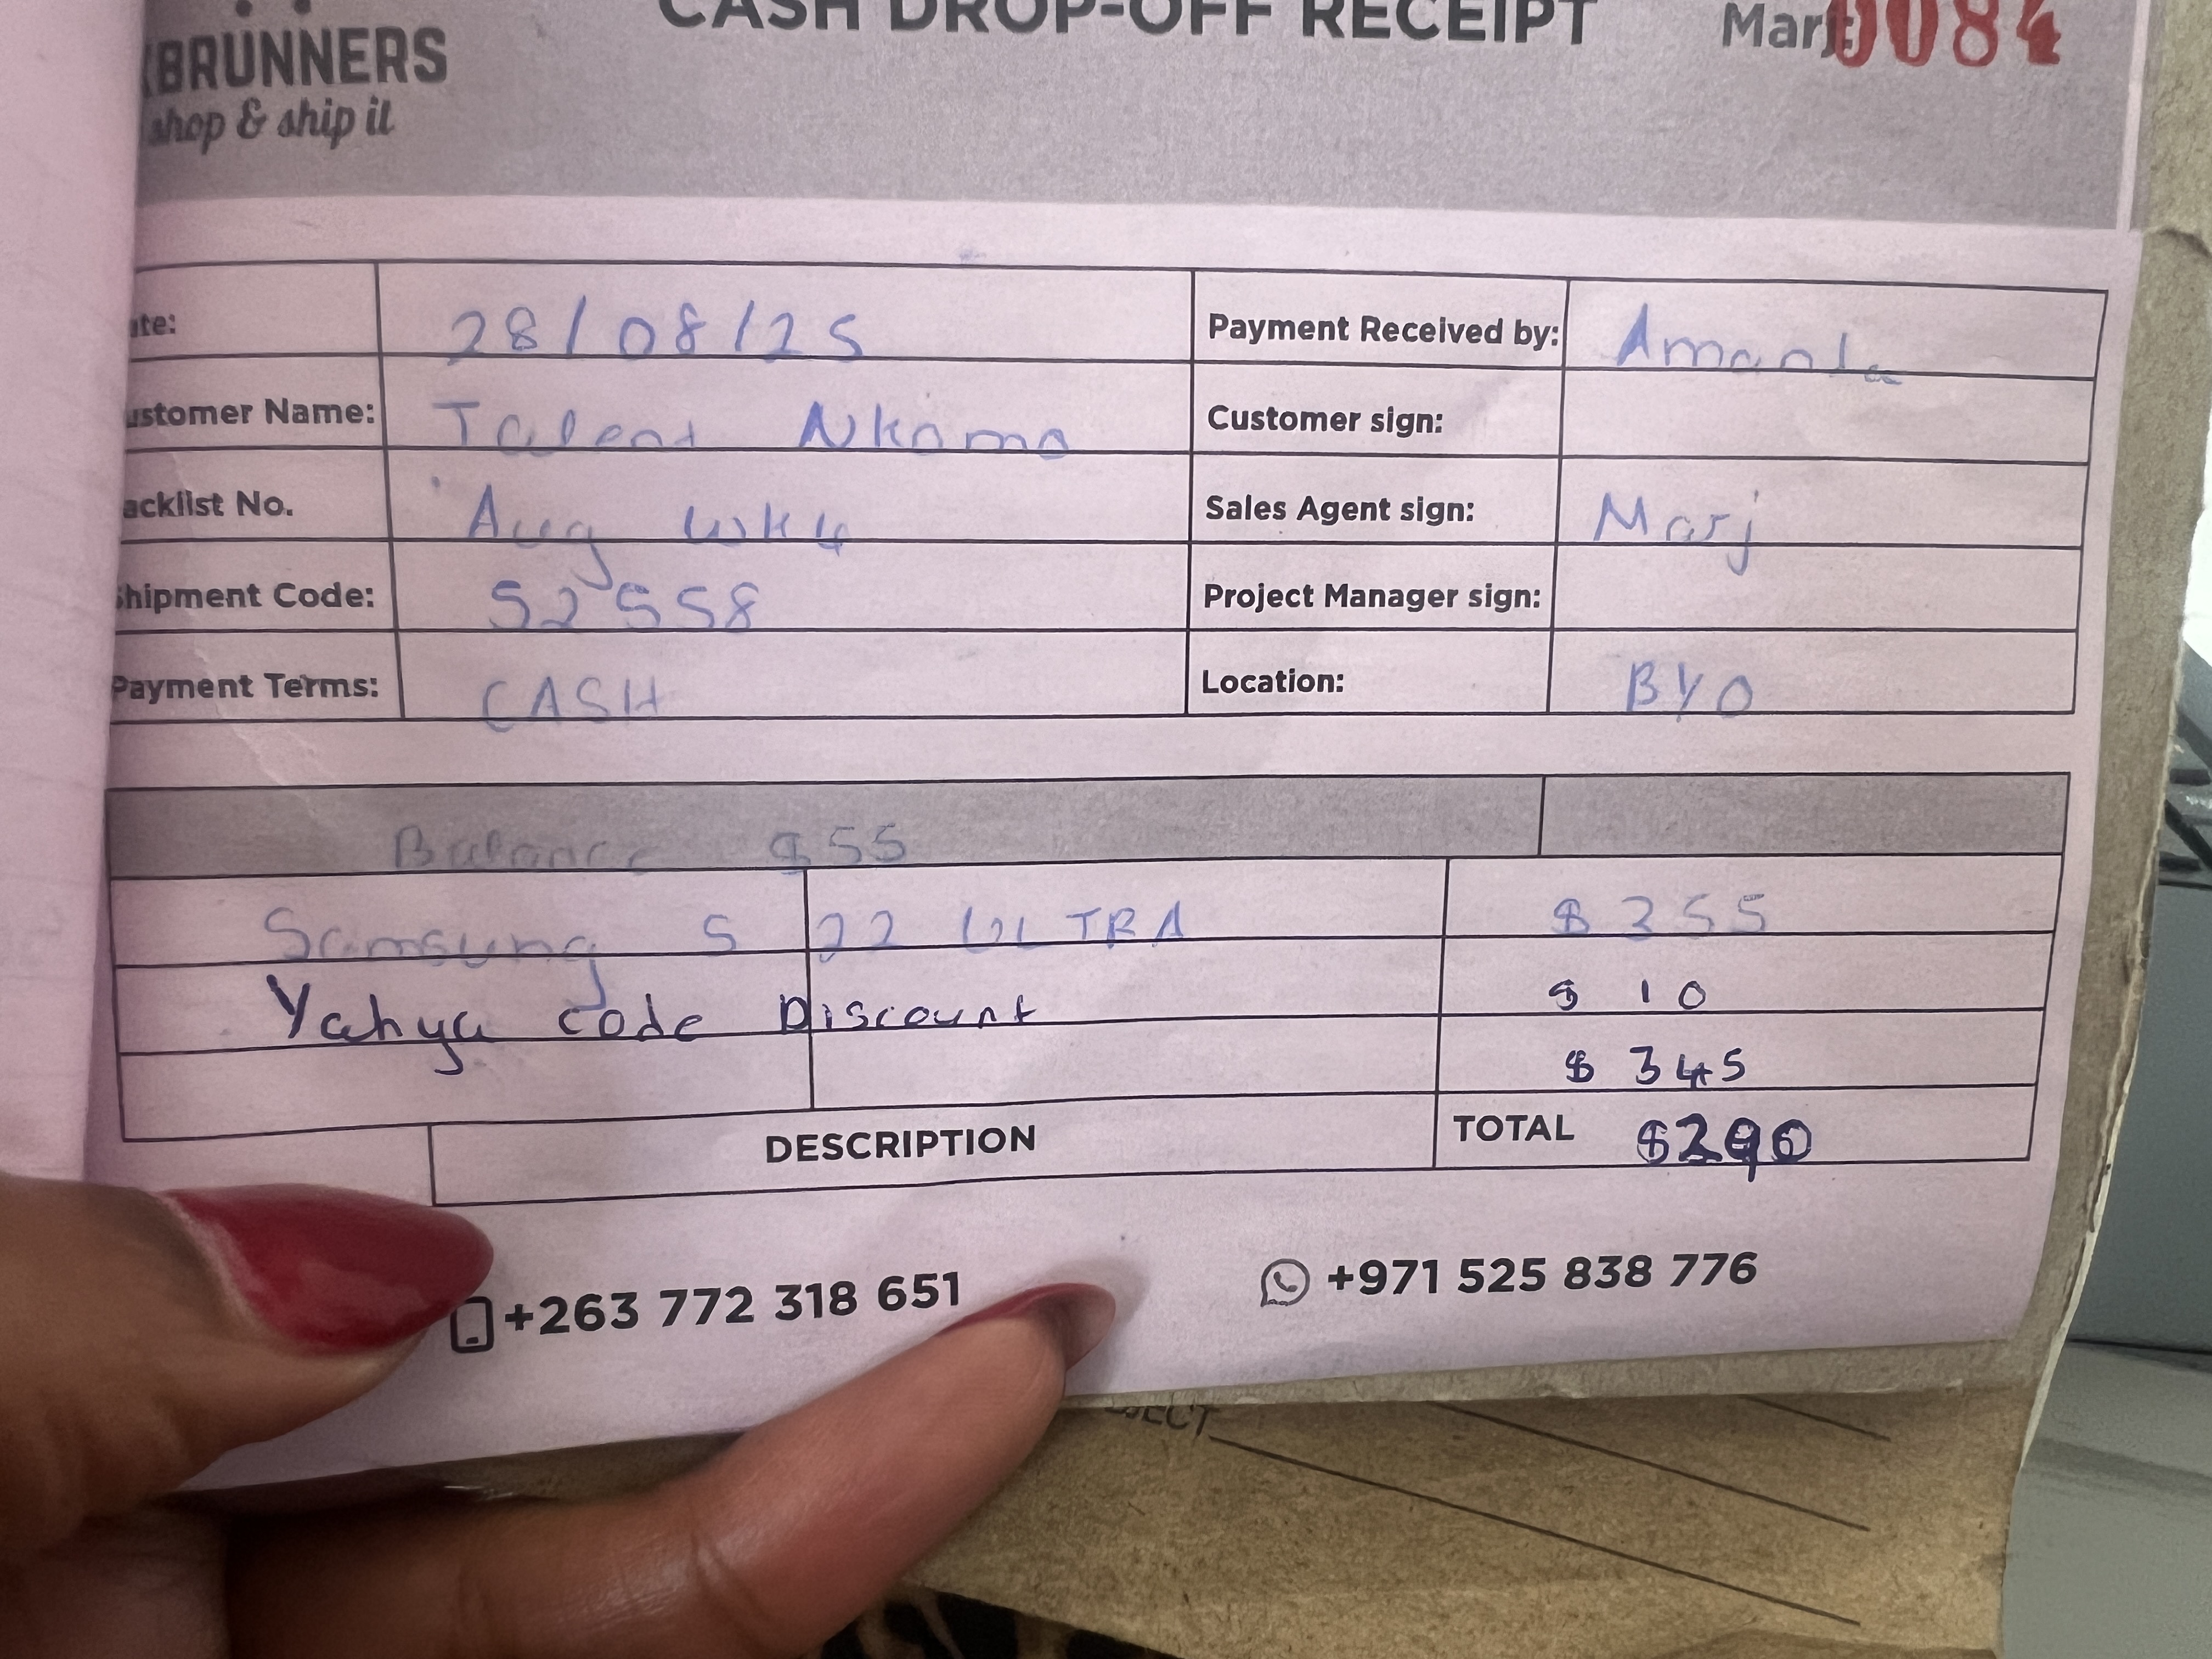 CASH DROP-OFF RECEIPT
Marj: 0084
BRUNNERS
shop & ship it
ate: 28/08/25 Payment Received by: Amanda
ustomer Name: Talent Nkomo Customer sign:
acklist No. Aug wk4 Sales Agent sign: Marj
Shipment Code: 52558 Project Manager sign:
Payment Terms: CASH Location: BYO
Balance $55
Samsung S 22 ULTRA $355
Yahya code Discount $10
$345
DESCRIPTION TOTAL $290
+263 772 318 651 +971 525 838 776